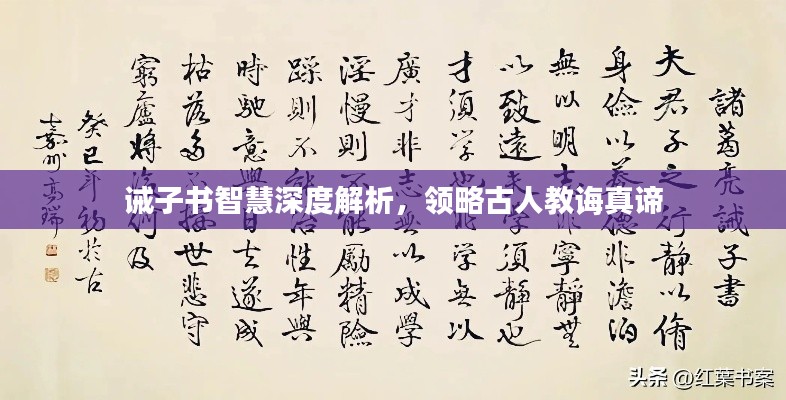 諸葛亮誡子書
夫君子之行靜以脩
身儉以養德非澹泊
無以明志非寧靜無
以致遠夫學須靜也
才須學也非學無以
廣才非志無以成學
淫慢則不能勵精險
躁則不能治性年與
時馳意與日去遂成
枯落多不接世悲守
窮廬將復何及
癸巳年初於古
嘉州
诫子书智慧深度解析，领略古人教诲真谛
头条 @红葉书案